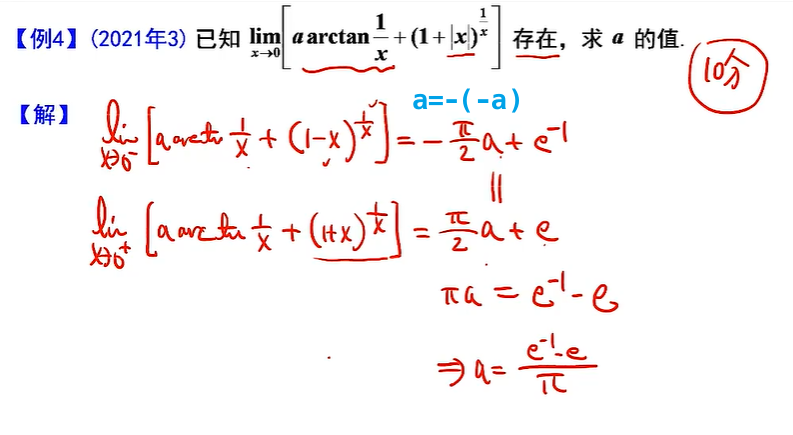 【例4】(2021年3) 已知 lim x→0 [a arctan 1/x + (1+|x|)^(1/x)] 存在，求 a 的值.
10分
【解】
a=-(-a)
lim x→0⁻ [a arctan 1/x + (1-x)^(1/x)] = -π/2 a + e⁻¹
||
lim x→0⁺ [a arctan 1/x + (1+x)^(1/x)] = π/2 a + e
πa = e⁻¹ - e
⇒ a = (e⁻¹-e)/π